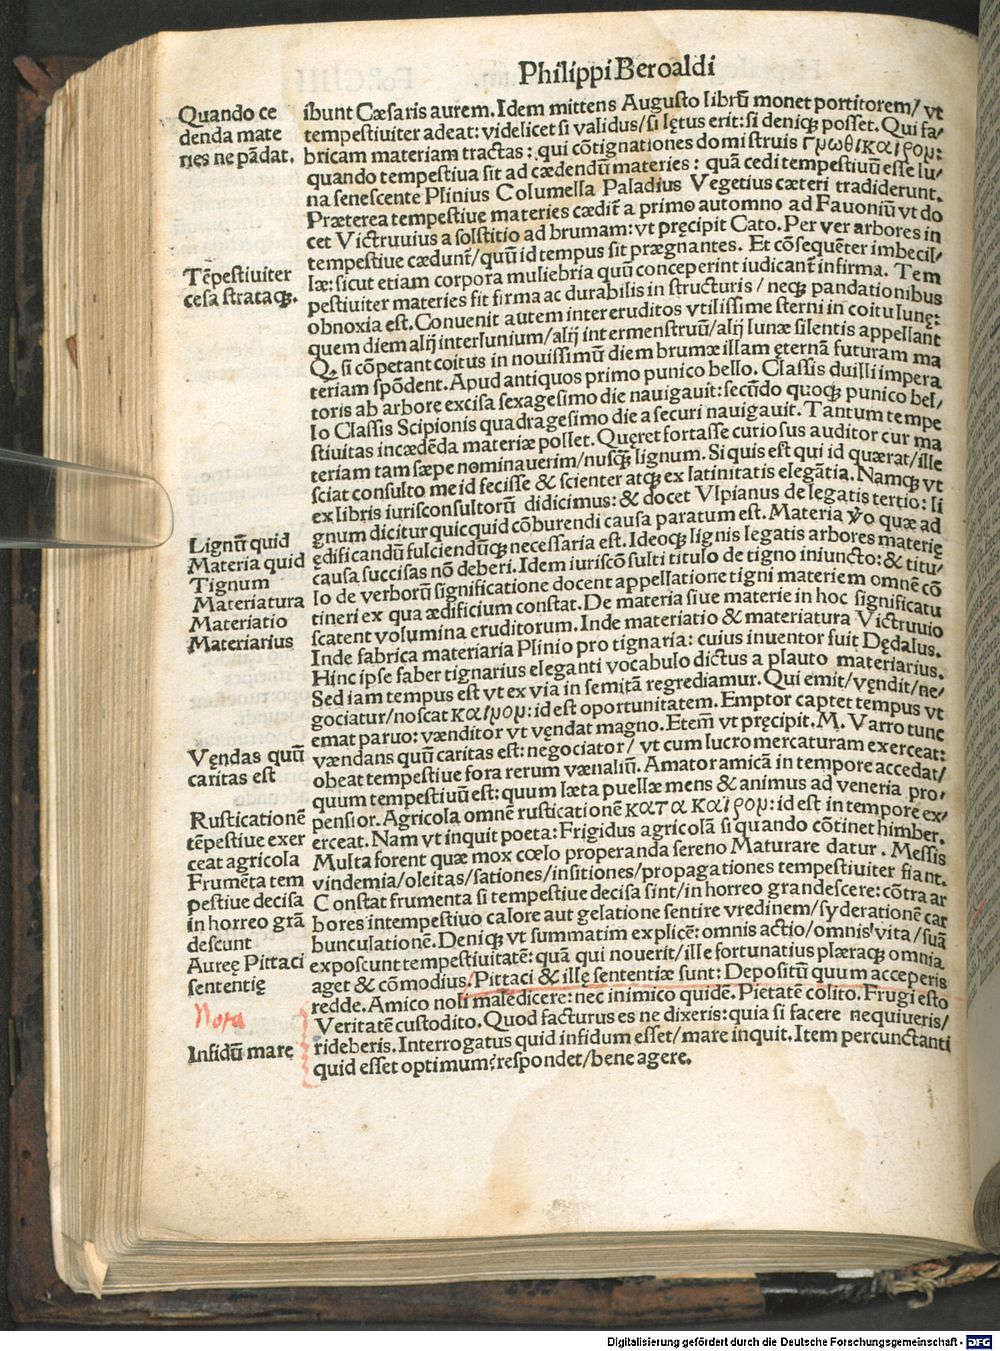 Philippi Beroaldi
Quando ce
denda mate
ries ne pādat.
ibunt Cæsaris aurem. Idem mittens Augusto librū monet portitorem/ vt
tempestiuiter adeat: videlicet si validus/si lętus erit: si deniqꝫ posset. Qui fa/
bricam materiam tractas: qui cōtignationes domi struis γρωθι καιρορ:
quando tempestiua sit ad cædendū materies: quā cedi tempestiuū esse lu/
na senescente Plinius Columella Paladius Vegetius cæteri tradiderunt.
Præterea tempestiue materies cædit̄ a primo automno ad Fauoniū vt do
cet Victruuius a solstitio ad brumam: vt pręcipit Cato. Per ver arbores in
tempestiue cædunt̄/quū id tempus sit prægnantes. Et cōsequēter imbecil/
læ: sicut etiam corpora muliebria quū conceperint iudicant̄ infirma. Tem
pestiuiter materies fit firma ac durabilis in structuris / neqꝫ pandationibus
obnoxia est. Conuenit autem inter eruditos vtilissime sterni in coitu lunę:
quem diem alij interlunium/alij intermenstruū/alij lunæ silentis appellant
Q̨ si cōpetant coitus in nouissimū diem brumæ illam ęternā futuram ma
teriam spōdent. Apud antiquos primo punico bello. Classis duilli impera
toris ab arbore excisa sexagesimo die nauigauit: secūdo quoqꝫ punico bel/
lo Classis Scipionis quadragesimo die a securi nauigauit. Tantum tempe
stiuitas incædēda materiæ pollet. Quęret fortasse curiosus auditor cur ma
teriam tam sæpe nominauerim/nusqꝫ lignum. Si quis est qui id quærat/ille
sciat consulto me id fecisse & scienter atqꝫ ex latinitatis elegātia. Namqꝫ vt
ex libris iurisconsultorū didicimus: & docet Vlpianus de legatis tertio: li
gnum dicitur quicquid cōburendi causa paratum est. Materia v̓o quæ ad
ędificandū fulciendūqꝫ necessaria est. Ideoqꝫ lignis legatis arbores materię
causa succisas nō deberi. Idem iuriscōsulti titulo de tigno iniuncto: & titu/
lo de verborū significatione docent appellatione tigni materiem omnē cō
tineri ex qua ædificium constat. De materia siue materie in hoc significatu
scatent volumina eruditorum. Inde materiatio & materiatura Victruuio
Inde fabrica materiaria Plinio pro tignaria: cuius inuentor fuit Dędalus.
Hinc ipse faber tignarius eleganti vocabulo dictus a plauto materiarius.
Sed iam tempus est vt ex via in semitā regrediamur. Qui emit/vęndit/ne/
gociatur/noscat καιρορ: id est oportunitatem. Emptor captet tempus vt
emat paruo: vænditor vt vęndat magno. Etem̄ vt pręcipit. M. Varro tunc
vændans quū caritas est: negociator/ vt cum lucro mercaturam exerceat:
obeat tempestiue fora rerum vænaliū. Amator amicā in tempore accedat/
quum tempestiuū est: quum læta puellæ mens & animus ad veneria pro/
pensior. Agricola omnē rusticationē κατα καιρορ: id est in tempore ex/
erceat. Nam vt inquit poeta: Frigidus agricolā si quando cōtinet himber.
Multa forent quæ mox cœlo properanda sereno Maturare datur. Messis
vindemia/oleitas/sationes/insitiones/propagationes tempestiuiter fiant.
Constat frumenta si tempestiue decisa sint/in horreo grandescere: cōtra ar
bores intempestiuo calore aut gelatione sentire vredinem/syderationē car
bunculationē. Deniqꝫ vt summatim explicē: omnis actio/omnis vita/suā
exposcunt tempestiuitatē: quā qui nouerit/ille fortunatius plæraqꝫ omnia
aget & cōmodius. Pittaci & illę sententiæ sunt: Depositū quum acceperis
redde. Amico noli maledicere: nec inimico quidē. Pietatē colito. Frugi esto
Veritatē custodito. Quod facturus es ne dixeris: quia si facere nequiueris/
rideberis. Interrogatus quid infidum esset/mare inquit. Item percunctanti
quid esset optimum: respondet/bene agere.
Tēpestiuiter
cesa strataqꝫ.
Lignū quid
Materia quid
Tignum
Materiatura
Materiatio
Materiarius
Vęndas quū
caritas est
Rusticationē
tēpestiue exer
ceat agricola
Frumēta tem
pestiue decisa
in horreo grā
descunt
Aureę Pittaci
sententię
Nota
Infidū mare
Digitalisierung gefördert durch die Deutsche Forschungsgemeinschaft - DFG